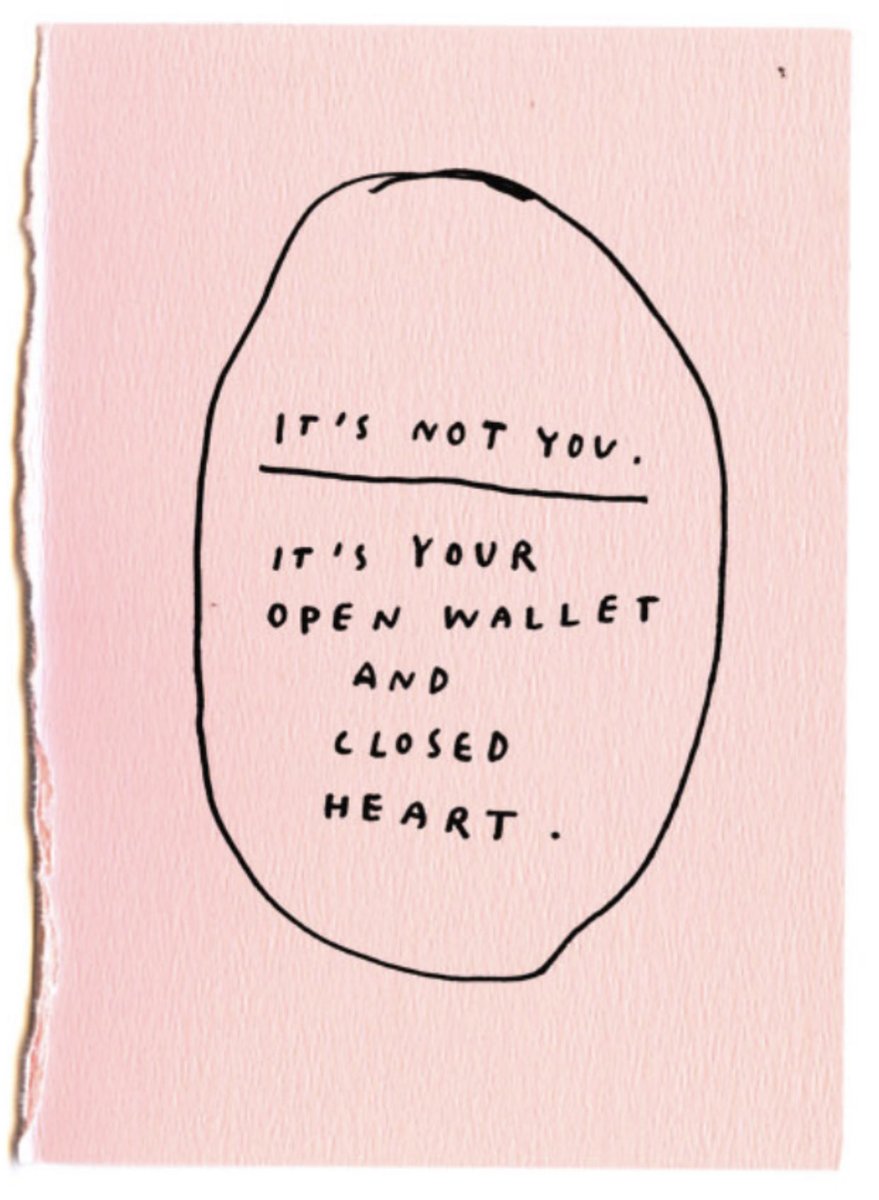 IT'S NOT YOU.
IT'S YOUR
OPEN WALLET
AND
CLOSED
HEART.